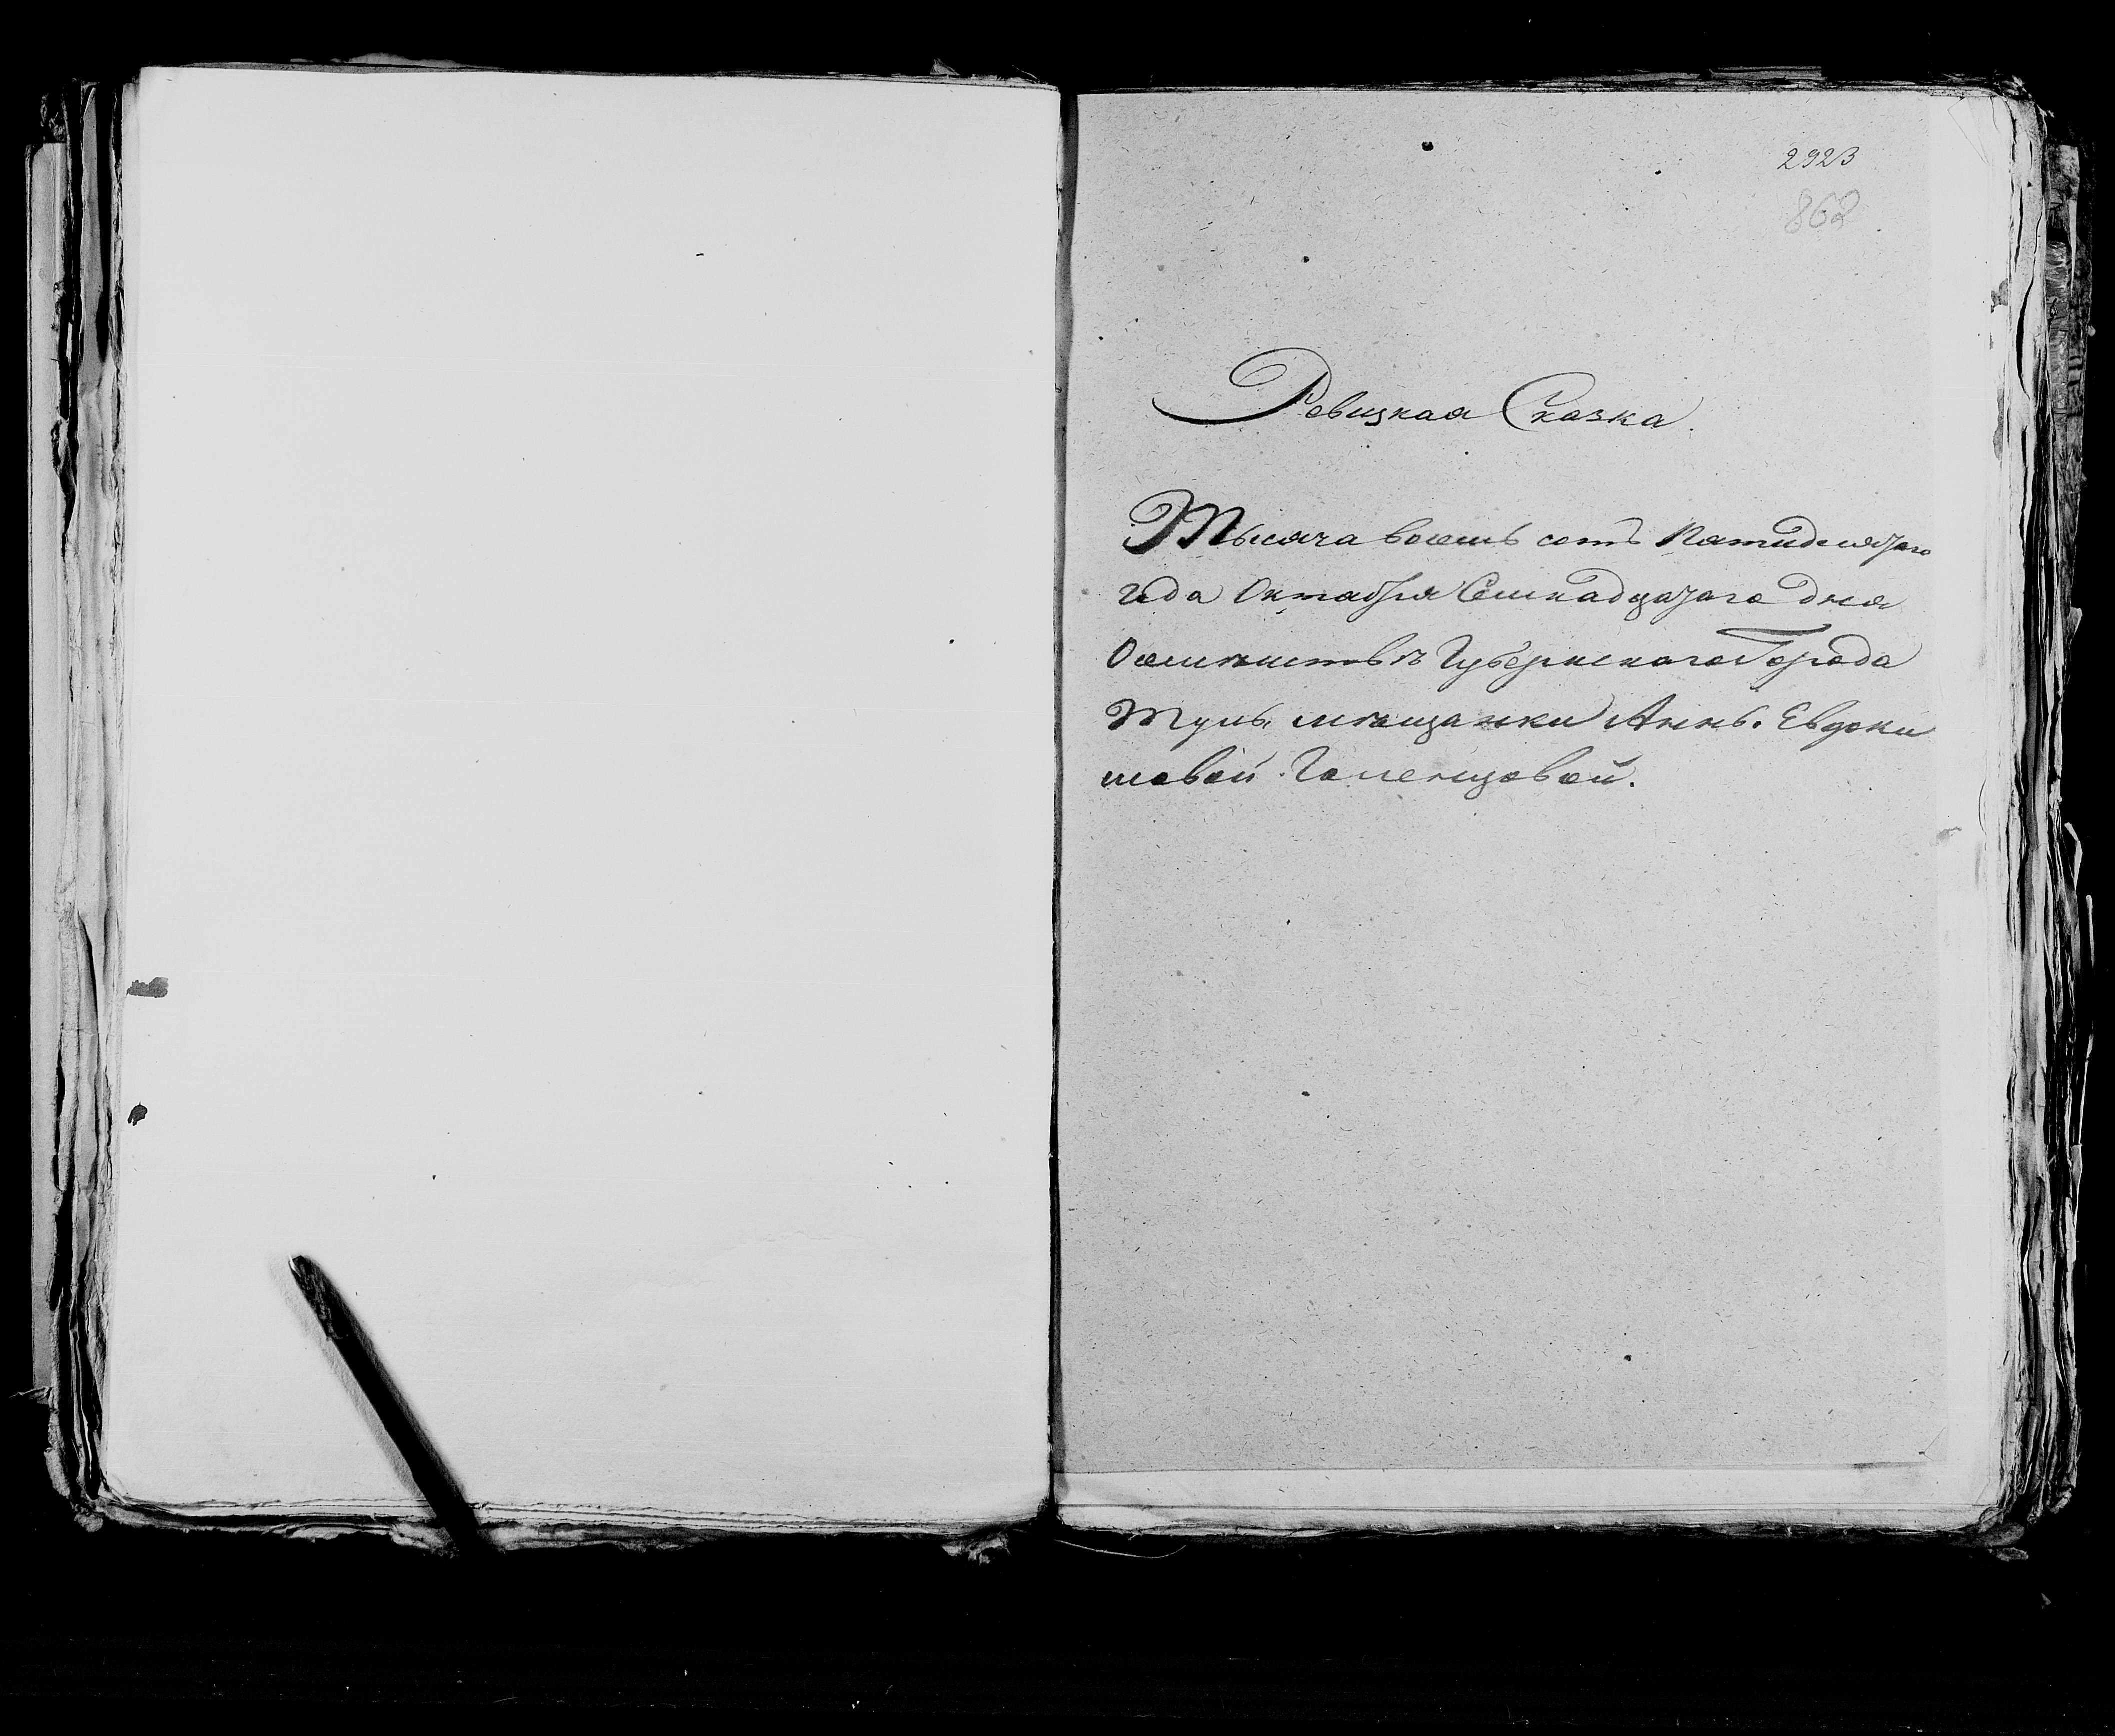 2923
862
Ревизкая Сказка.
Тысяча восемь сотъ Пятидесятаго
года Октября Семнадцатаго дня
О семействѣ Губернскаго Города
Тулы мѣщанки Анны Евдоки
мовой Галенцовой.